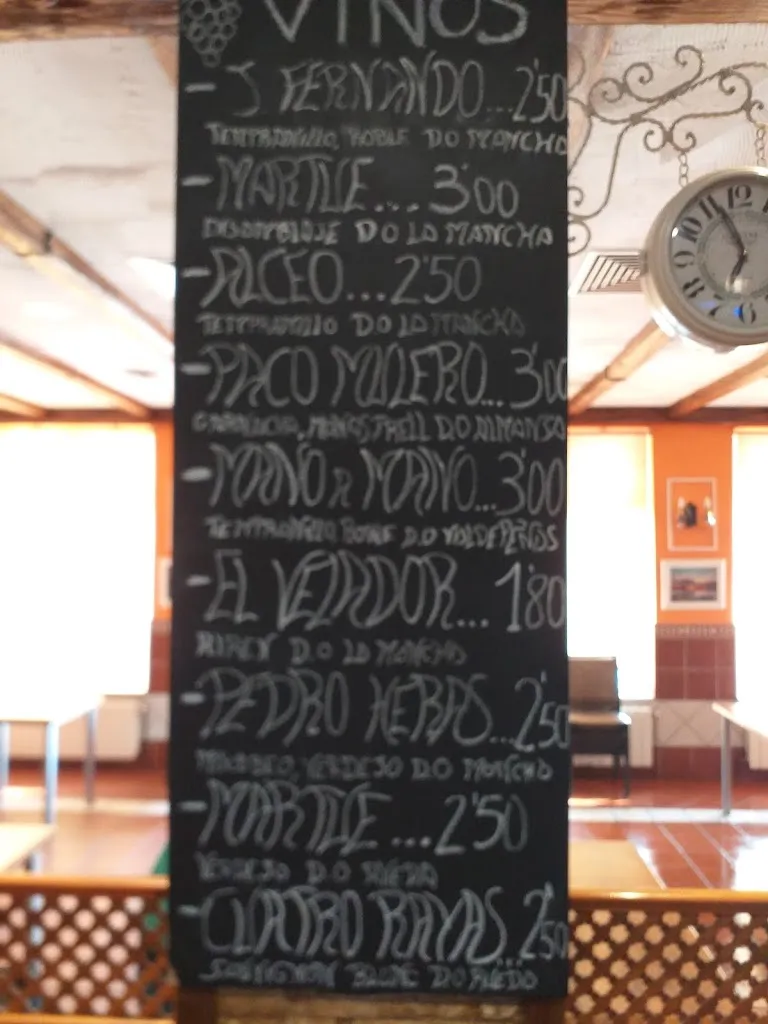 VINOS
- J FERNANDO...2'50
TEMPRANILLO, ROBLE DO MANCHA
- MARTUE... 3'00
DO LA MANCHA
- ALCEO...2'50
TEMPRANILLO DO LA MANCHA
- PACO MULERO...3'00
GARNACHA, MONASTRELL DO ALMANSA
- MANO A MANO...3'00
TEMPRANILLO ROBLE DO VALDEPEÑAS
- EL VELADOR... 1'80
AIREN DO LA MANCHA
- PEDRO HERAS...2'50
MACABEO, VERDEJO DO MANCHA
- MARTUE ...2'50
VERDEJO DO RUEDA
- CUATRO RAYAS...2'50
SAUVIGNON BLANC DO RUEDA
12